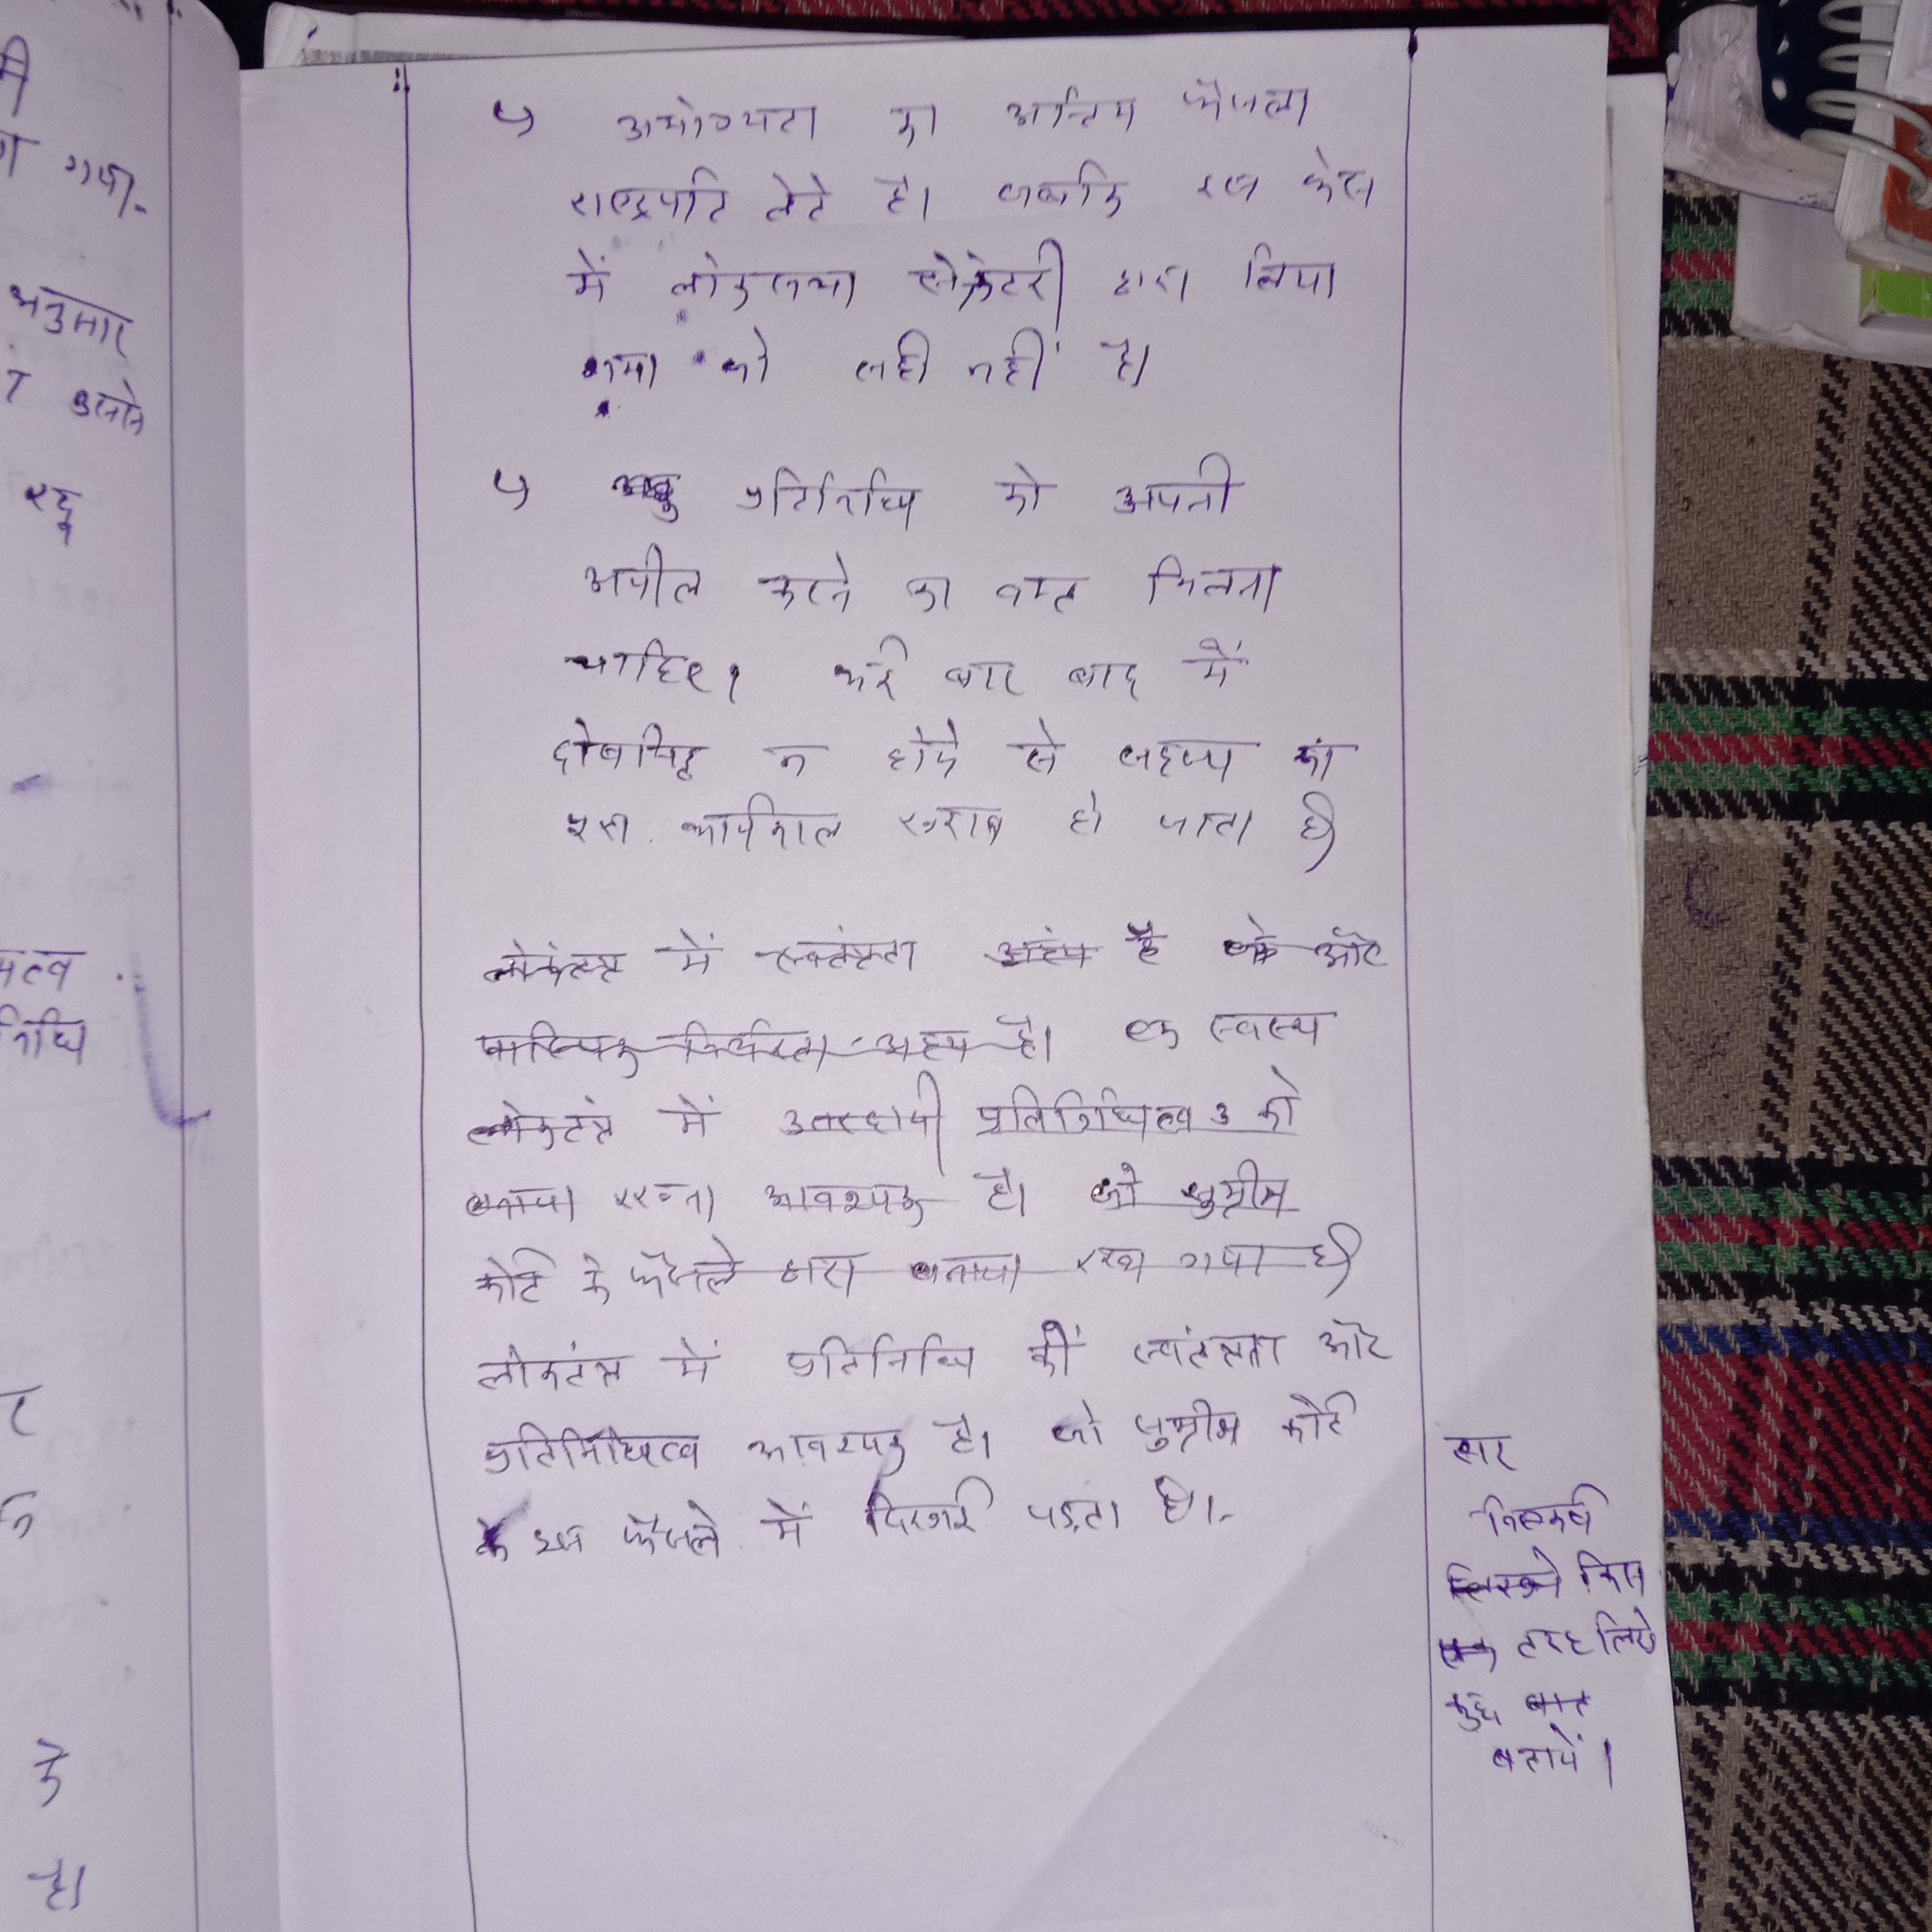 ↳ अयोग्यता का अन्तिम फैसला
राष्ट्रपति लेते है। जबकि इस केस
में लोकसभा सेक्रेटरी द्वारा लिया
गया जो सही नहीं है।
↳ प्रतिनिधि को अपनी
अपील करने का वक्त मिलना
चाहिए। कई बार बाद में
दोषसिद्ध न होने से सदस्य का
कार्यकाल खराब हो जाता है।
लोकतंत्र में स्वतंत्रता अहम है और
अहम है। एक स्वस्थ
लोकतंत्र में उत्तरदायी प्रतिनिधित्व को
बनाया रखना आवश्यक है। जो सुप्रीम
कोर्ट के फैसले द्वारा बनाया रखा गया है।
लोकतंत्र में प्रतिनिधि की स्वतंत्रता और
प्रतिनिधित्व आवश्यक है। जो सुप्रीम कोर्ट
के इस फैसले में दिखाई पड़ता है।
सर
निष्कर्ष
लिखने किस
तरह लिखे
कुछ बात
बतायें।
मी
गयी-
अनुसार
उसने
रद्द
निधि
के
है।